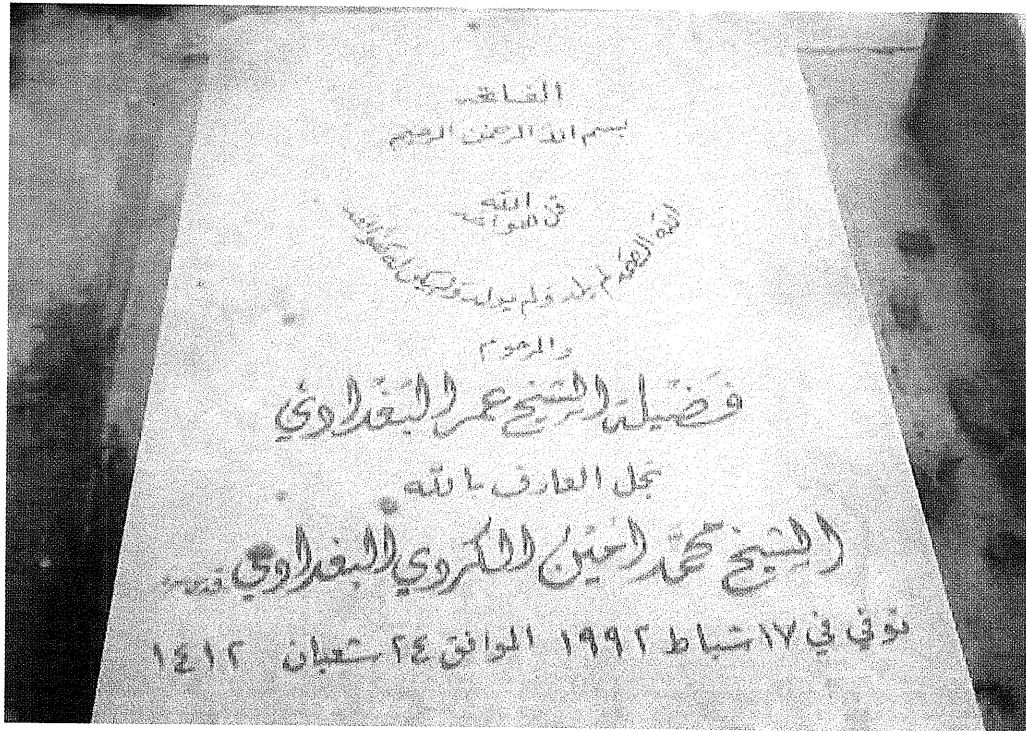 الفاتحة
بسم الله الرحمن الرحيم
قل هو الله احد
الله الصمد لم يلد ولم يولد ولم يكن له كفوا احد
والمرحوم
فَضيلة الشيخ عمر البَغْدادي
نجل العارف بالله
الشيخ محمَّد امينْ الكردي البغدادي
توفي في ١٧ شباط ١٩٩٢ الموافق ٢٤ شعبان ١٤١٢